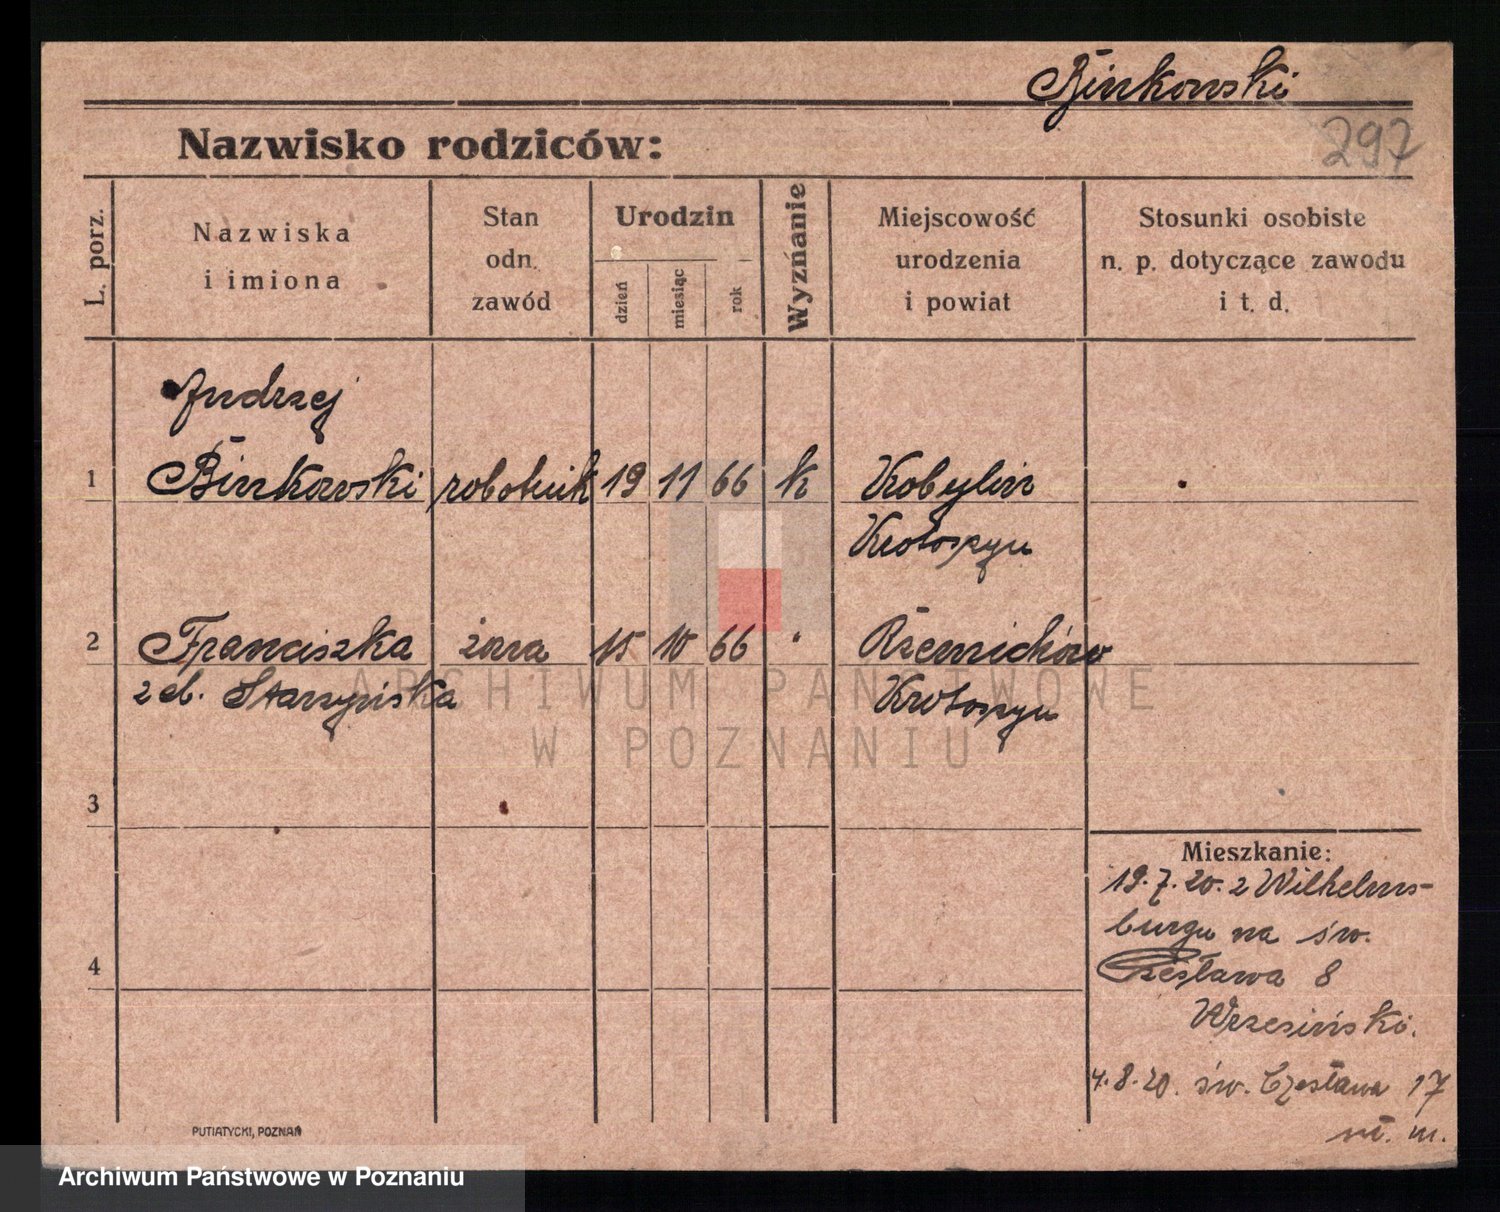 Binkowski
297
Nazwisko rodziców:
L. porz.
Nazwiska
i imiona
Stan
odn.
zawód
Urodzin
dzień
miesiąc
rok
Wyznanie
Miejscowość
urodzenia
i powiat
Stosunki osobiste
n. p. dotyczące zawodu
i t. d.
Andrzej
1 Binkowski robotnik 19 11 66 k Kobylin
Krotoszyn
2 Franciszka żona 15 10 66 "
zd. Starzyńska Krotoszyn
3
4
Mieszkanie:
19.7.20. z Wilhelms-
burgu na św.
Czesława 8
Wrzesiński.
4.8.20. św. Czesława 17
PUTIATYCKI, POZNAŃ
ARCHIWUM PAŃSTWOWE
W POZNANIU
Archiwum Państwowe w Poznaniu